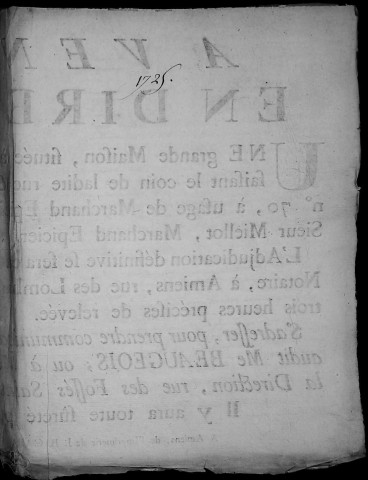 A VEN
1725.
EN DIRE
UNE grande Maiſon, ſituée
faiſant le coin de ladite rue
n° 70, à uſage de Marchand Ep
Sieur Miellot, Marchand Epicier
L'Adjudication définitive ſe fera
Notaire, à Amiens, rue des Lom
trois heures préciſes de relevée.
S'adreſſer, pour prendre commun
audit Me BEAUGEOIS; ou à
la Direction, rue des Foſſés Sa
Il y aura toute ſûreté p